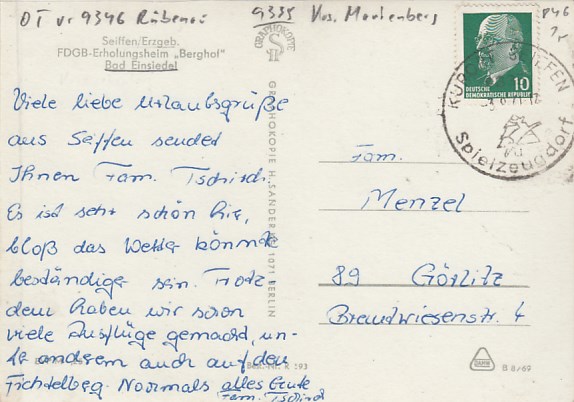 OT vr 9346 Rübenau
9335
Kr s. Marienberg
Seiffen/Erzgeb.
FDGB-Erholungsheim „Berghof"
Bad Einsiedel
GRAPHOKOPIE
GRAPHOKOPIE H. SANDER KG 1071 BERLIN
10
DEUTSCHE
DEMOKRATISCHE REPUBLIK
KURORT SEIFFEN
Spielzeugdorf
Viele liebe Urlaubsgrüße
aus Seffen sendet
Ihnen Fam. Tschirch.
Es ist sehr schön hir,
bloß das Wetter könnte
beständiger sein. Trotz
dem haben wir schon
viele Ausflüge gemacht, un-
te anderem auch auf den
Fichtelberg. Normals alles Gute
Fam. Tschirch
Fam.
Menzel
89 Görlitz
Brandwiesenstr. 4
Best.-Nr. R 193
B 8/69